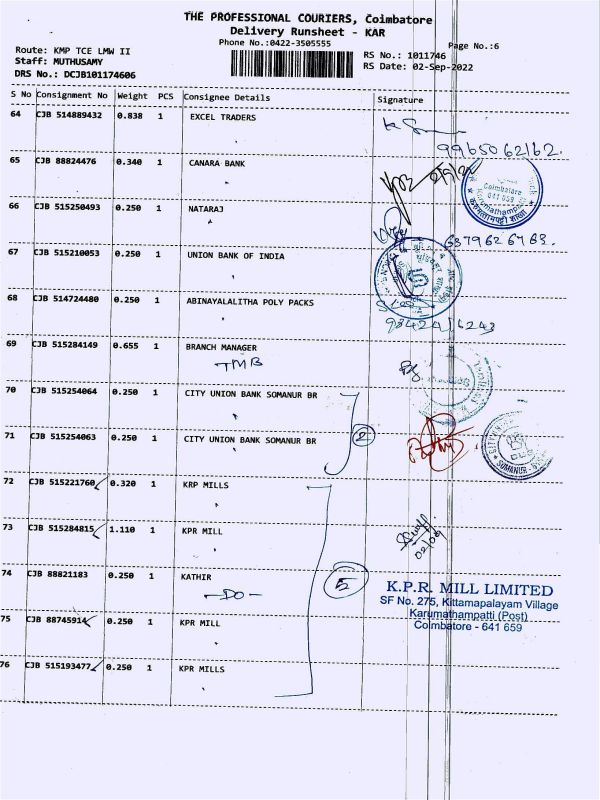 THE PROFESSIONAL COURIERS, Coimbatore
Delivery Runsheet - KAR
Phone No.:0422-3505555
Page No.:6
Route: KMP TCE LMW II
RS No.: 1011746
Staff: MUTHUSAMY
RS Date: 02-Sep-2022
DRS No.: DCJB101174606
S No Consignment No Weight PCS Consignee Details Signature
64 CJB 514889432 0.838 1 EXCEL TRADERS
9965062162.
65 CJB 88824476 0.340 1 CANARA BANK
Coimbatore
641 659
Karumathampatti
66 CJB 515250493 0.250 1 NATARAJ
6379626763.
67 CJB 515210053 0.250 1 UNION BANK OF INDIA
68 CJB 514724480 0.250 1 ABINAYALALITHA POLY PACKS
69 CJB 515284149 0.655 1 BRANCH MANAGER
TMB
70 CJB 515254064 0.250 1 CITY UNION BANK SOMANUR BR
71 CJB 515254063 0.250 1 CITY UNION BANK SOMANUR BR
2
SOMANUR
72 CJB 515221760 0.320 1 KRP MILLS
73 CJB 515284815 1.110 1 KPR MILL
02/09
74 CJB 88821183 0.250 1 KATHIR
-DO-
5
K.P.R. MILL LIMITED
SF No. 275, Kittamapalayam Village
Karumathampatti (Post)
Coimbatore - 641 659
75 CJB 88745914 0.250 1 KPR MILL
76 CJB 515193477 0.250 1 KPR MILLS